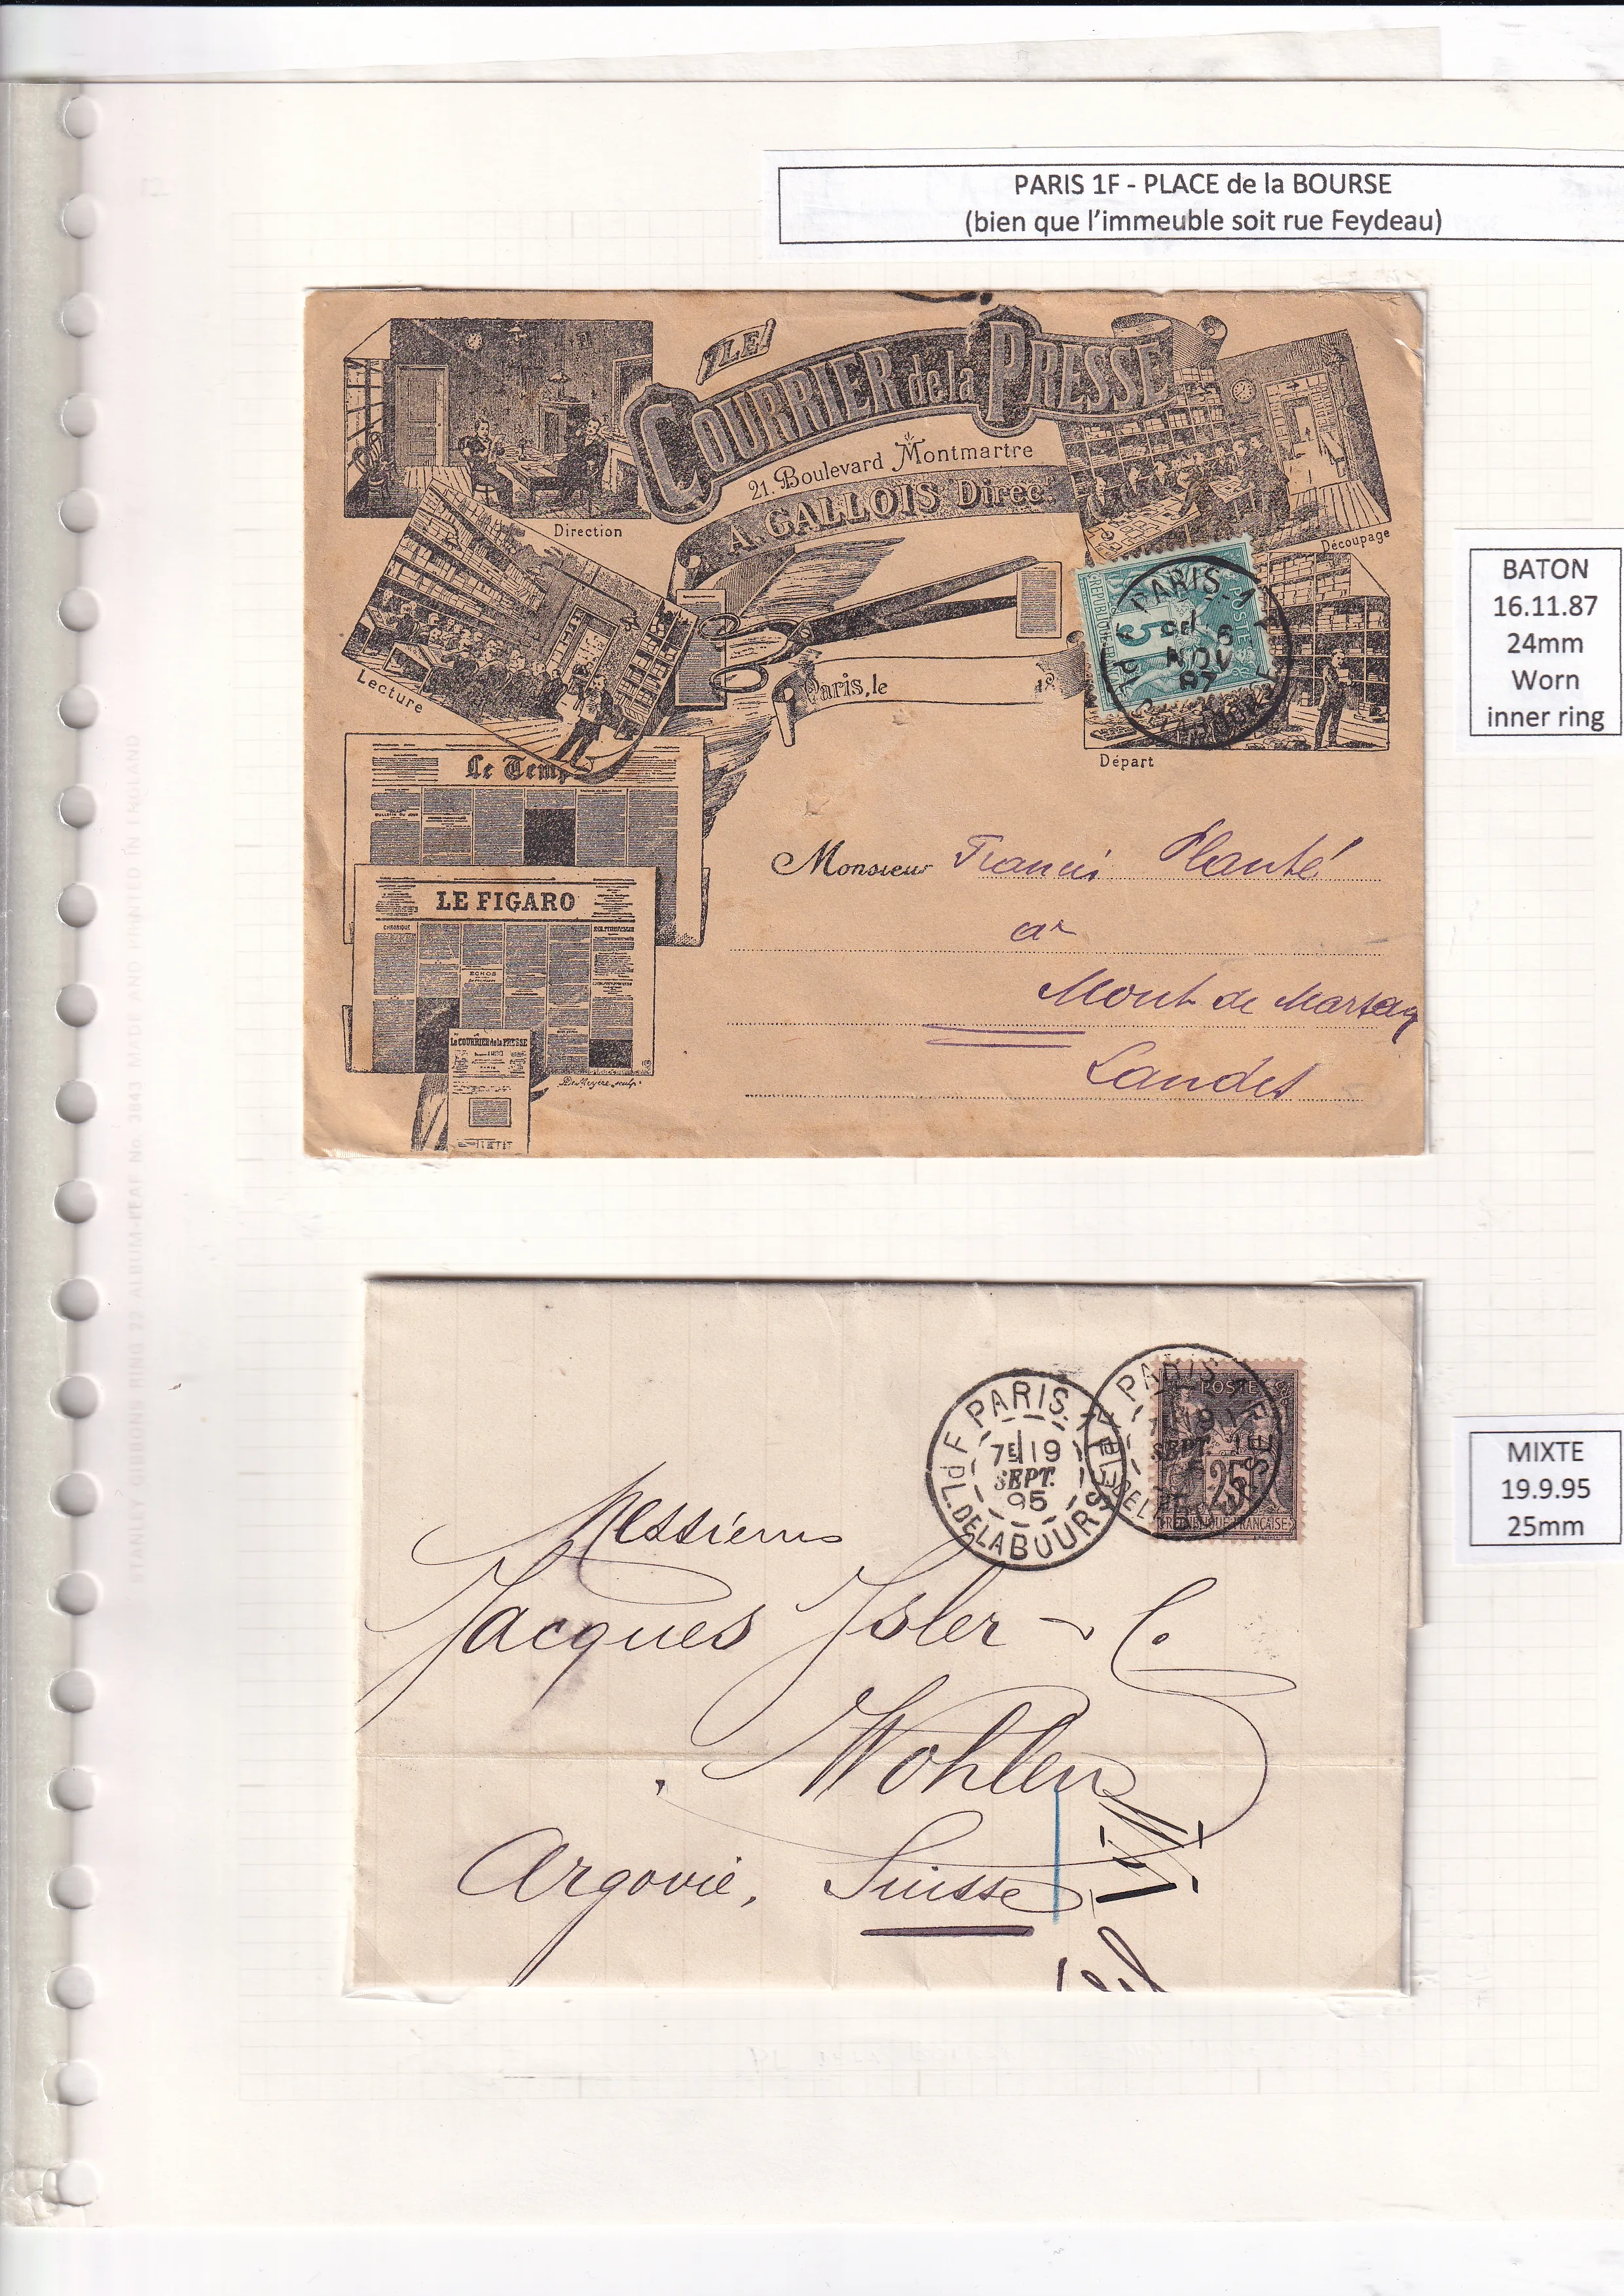 PARIS 1F - PLACE de la BOURSE
(bien que l'immeuble soit rue Feydeau)
LE
COURRIER de la PRESSE
21. Boulevard Montmartre
A. GALLOIS Direct.
Direction
Découpage
Lecture
Paris, le 18
Départ
PARIS. 1
6
NOV
87
POSTES
5
BATON
16.11.87
24mm
Worn
inner ring
Le Temp
LE FIGARO
CHRONIQUE
ECHOS
Le COURRIER de la PRESSE
De Meyère sculp.
Monsieur Francis Planté
ar
Mont de Marsan
Landes
PARIS. 1
7E 19
SEPT.
95
F PL. DE LA BOURSE
PARIS 1
19
SEPT.
POSTES
25
REPUBLIQUE FRANÇAISE
MIXTE
19.9.95
25mm
Messieurs
Jacques Isler & C.
Wohlen
Argovie, Suisse
STANLEY GIBBONS RING 22 ALBUM-LEAF No. 3843 MADE AND PRINTED IN ENGLAND